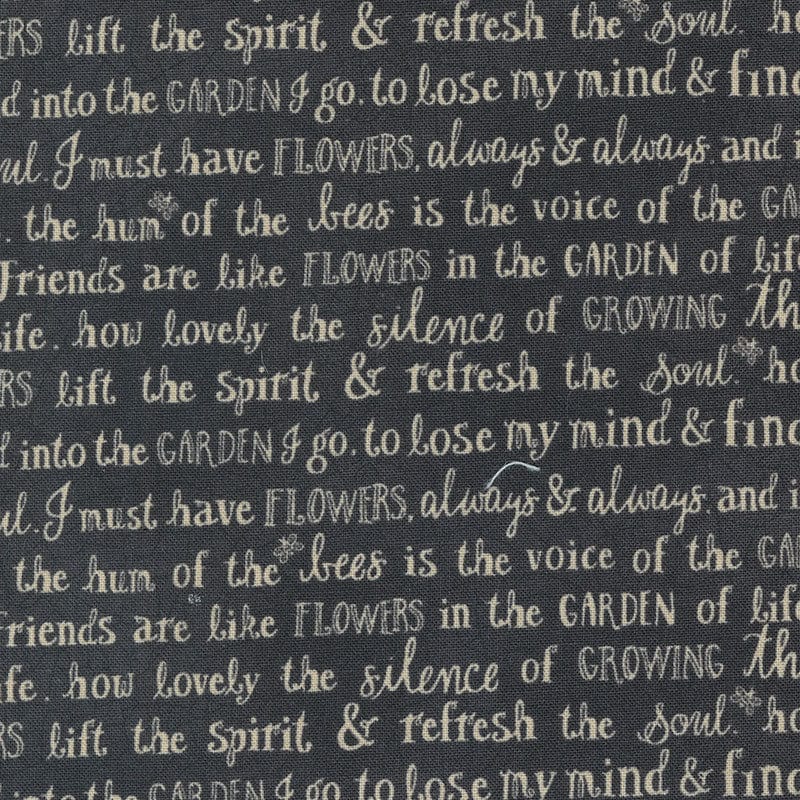 ERS lift the spirit & refresh the soul. ho
d into the GARDEN I go. to lose my mind & find
ul. I must have FLOWERS, always & always. and i
. the hum of the bees is the voice of the GA
Friends are like FLOWERS in the GARDEN of life
ife. how lovely the silence of GROWING th
RS lift the spirit & refresh the soul. ho
d into the GARDEN I go. to lose my mind & find
ul. I must have FLOWERS, always & always. and i
the hum of the bees is the voice of the GA
friends are like FLOWERS in the GARDEN of life
ife. how lovely the silence of GROWING th
RS lift the spirit & refresh the soul. ho
into the GARDEN I go to lose my mind & find